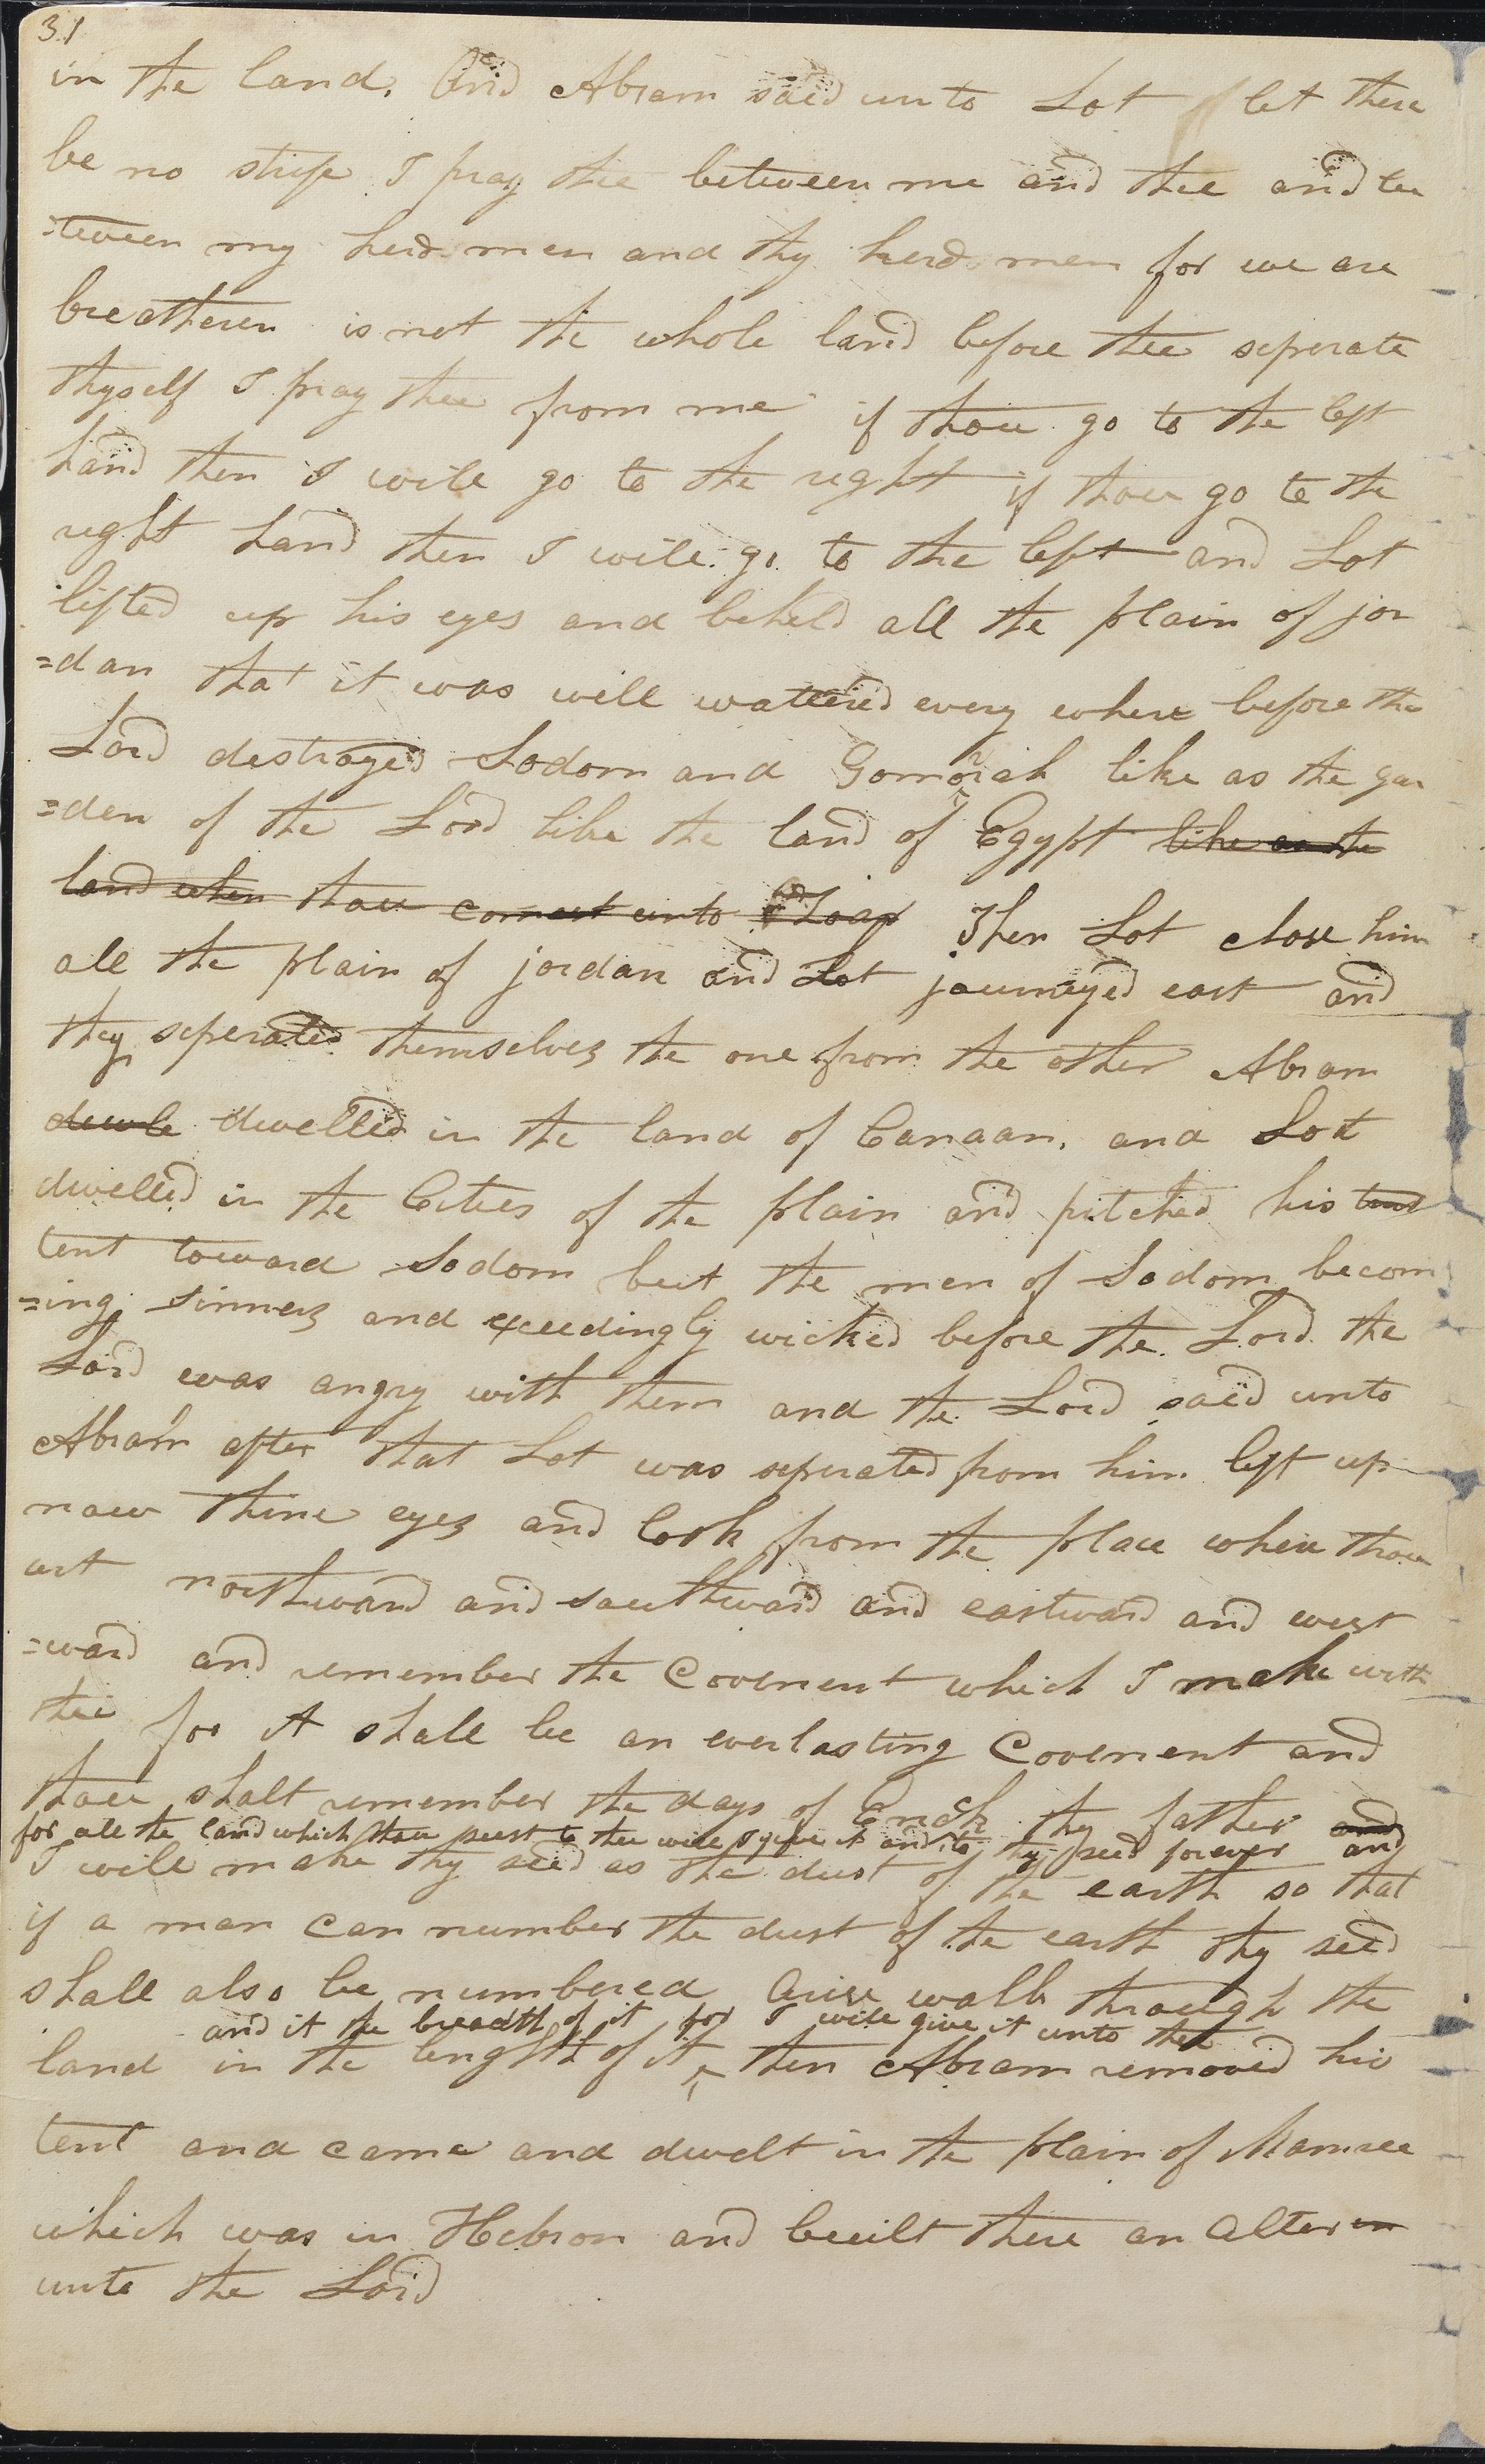 31
in the land. And Abram said unto Lot let there
be no strife I pray thee between me and thee and be
=tween my herd men and thy herd men for we are
breatheren is not the whole land before thee seperate
thyself I pray thee from me if thou go to the left
hand then I will go to the right if thou go to the
right hand then I will go to the left and Lot
lifted up his eyes and beheld all the plain of jor
=dan that it was well wattered every where before the
Lord destroyed Sodom and Gomorah like as the gar
=den of the Lord like the land of Egypt like as the
land when thou comest unto Zoar Then Lot chose him
all the plain of jordan and Lot journeyed east and
they seperated themselves the one from the other Abram
dwele dwelled in the land of Canaan, and Lot
dwelled in the Cities of the plain and pitched his tend
tent toward Sodom but the men of Sodom becom
=ing sinners and exceedingly wicked before the Lord the
Lord was angry with them and the Lord said unto
Abram after that Lot was seperated from him lift up
now thine eyes and look from the place where thou
art northward and southward and eastward and west
=ward and remember the Covenent which I make with
thee for it shall be an everlasting Covenent and
thou shalt remember the days of Enoch thy father and
for all the land which thou seest to thee will I give it and to thy seed forever and
I will make thy seed as the dust of the earth so that
if a man can number the dust of the earth thy seed
shall also be numbered Arise walk through the
and it the breadth of it for I will give it unto thee
land in the length of it then Abram removed his
tent and came and dwelt in the plain of Mamree
which was in Hebron and built there an alter un
unto the Lord